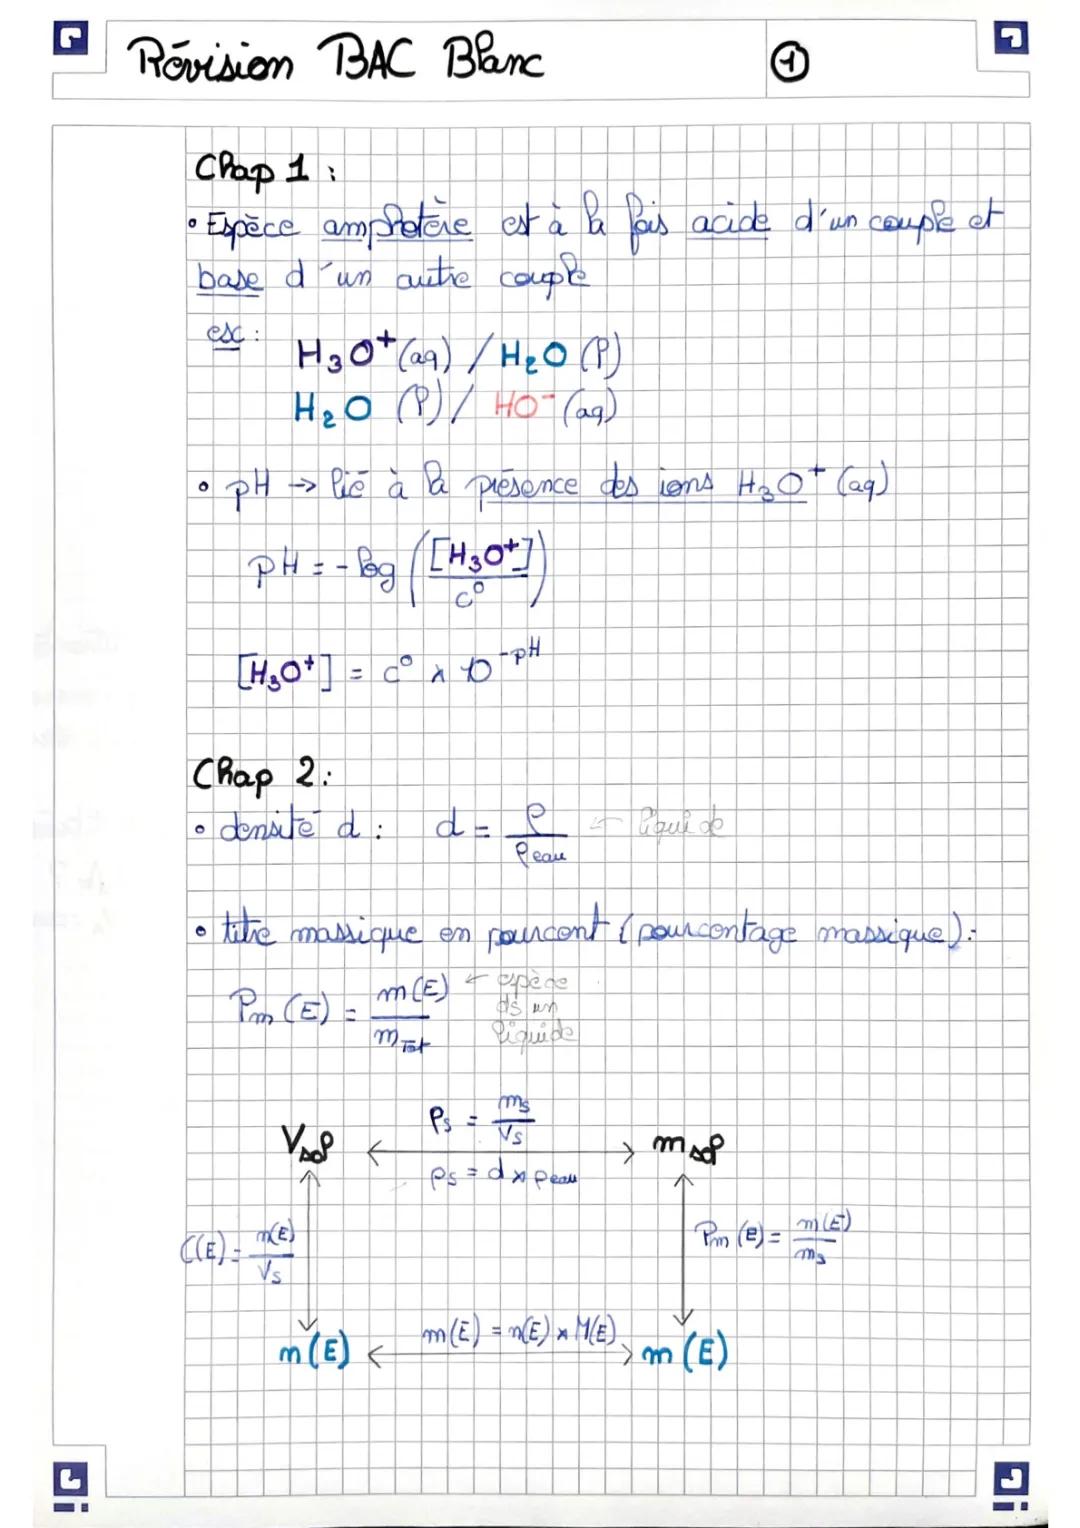 Révision BAC Blanc
1
Chap 1 :
• Espèce amphotère est à la fois acide d'un couple et
base d'un autre couple
ex :
H₃O⁺(aq) / H₂O (l)
H₂O (l) / HO⁻ (aq)
• pH → lié à la présence des ions H₃O⁺ (aq)
pH = - log ([H₃O⁺] / c°)
[H₃O⁺] = c° × 10^-pH
Chap 2 :
• densité d : d = ρ / ρeau ← liquide
• titre massique en pourcent (pourcentage massique) :
Pm (E) = m(E) / mTot ← espèce
ds un
liquide
ρs = ms / Vs
Vsol ⟷ msol
ρs = d × ρeau
C(E) = n(E) / Vs
Pm (E) = m(E) / ms
m(E) = n(E) × M(E)
n(E) ⟷ m(E)